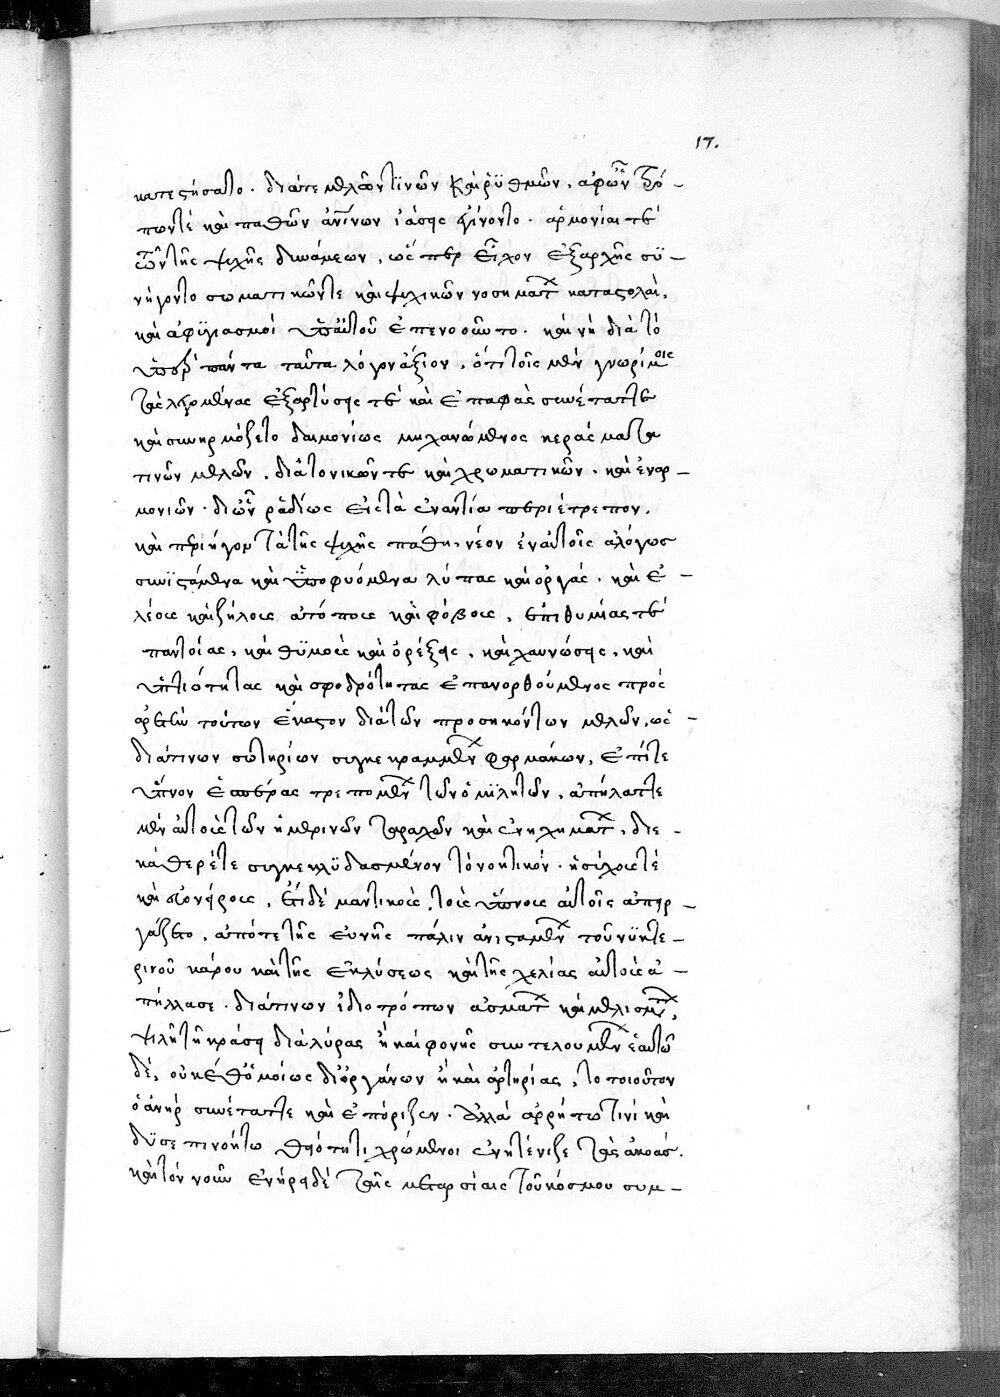 17.
κατεστήσατο. διάτε μελῶν τϊνῶν καὶ ῥϋθμῶν, ἀφῶν τρό-
πωντέ καὶ παθῶν ἀν̅ίνων ἰάσεις ἐγίνοντο. ἁρμονίαι τὲ
τῶν τῆς ψυχῆς δυνάμεων, ὥσπερ εἶχον ἐξαρχῆς σϋ-
νήγοντο σωματικῶντε καὶ ψυχικῶν νοσημάτ καταστολαὶ,
καὶ ἀφϋγιασμοὶ ὑπ' αὐτοῦ ἐπενοοῦντο. καὶ νὴ διὰ τὸ
ὑπὲρ πάντα ταῦτα λόγου ἄξιον, ὅτι τοῖς μὲν γνωρίμοις
τὰς λεγομένας ἐξαρτύσεις τὲ καὶ ἐπαφὰς συνέταττε
καὶ συνηρμόζετο δαιμονίως μηχανώμενος κεράσματα
τινῶν μελῶν, διατονικῶν τὲ καὶ χρωματικῶν, καὶ ἐναρ-
μονιῶν. δι' ὧν ῥαδίως εἰς τὰ ἐναντία περιέτρεπον,
καὶ περιήγον τὰ τῆς ψυχῆς πάθη, νέον ἐν αὐτοῖς ἀλόγως
συνϊστάμενα καὶ ὑποφυόμενα λύπας καὶ ὀργὰς. καὶ ἐ-
λέοις καὶ ζήλοις ἀτόποις καὶ φόβοις, ἐπιθυμίας τὲ
παντοίας, καὶ θϋμοὺς καὶ ὀρέξεις, καὶ χαυνώσεις, καὶ
ὑπτιότητας καὶ σφοδρότητας ἐπανορθούμενος πρὸς
ἀρετὴν τούτων ἕκαστον διὰ τῶν προσηκόντων μελῶν, ὡς-
διά τινων σωτηρίων συγκεκραμμέν φαρμάκων, ἐπίτε
ὕπνον ἑσπέρας τρεπομέν τῶν ὁμϊλητῶν, ἀπήλαττε
μὲν αὐτοὺς τῶν ἡμερινῶν ταραχῶν καὶ ἐνηχημάτ, διε-
κάθερέτε συγκεκλϋδασμένον τὸ νοητικὸν. ἡσύχους τὲ
καὶ εὐονείρους, ἔτι δὲ μαντικοὺς, τοὺς ὕπνους αὐτοῖς ἀπερ-
γάζετο, ἀπότε τῆς εὐνῆς πάλιν ἀνισταμέν τοῦ νϋκτε-
ρινοῦ κάρου καὶ τῆς ἐκλύσεως καὶ τῆς χελίας αὐτοὺς ἀ-
πήλλασε. διά τινων ἰδιοτρόπων ἀσμάτ καὶ μελισμάτ,
ψιλῆ τῆ κράσει διὰ λύρας ἢ καὶ φονῆς συντελουμέν ἑαυτῶ
δὲ, οὐκέθ' ὁμοίως δι' ὀργάνων ἢ καὶ ἀρτηρίας, τὸ τοιοῦτον
ὁ ἀνὴρ συνέταττε καὶ ἐπόριζεν. ἀλλὰ ἀρρήτω τινὶ καὶ
δϋσεπινοήτω θειότητι χρώμενοι ἐνητένιζε τὰς ἀκοὰς.
καὶ τὸν νοῦν ἐνήρειδὲ ταῖς μεταρσίαις τοῦ κόσμου συμ-